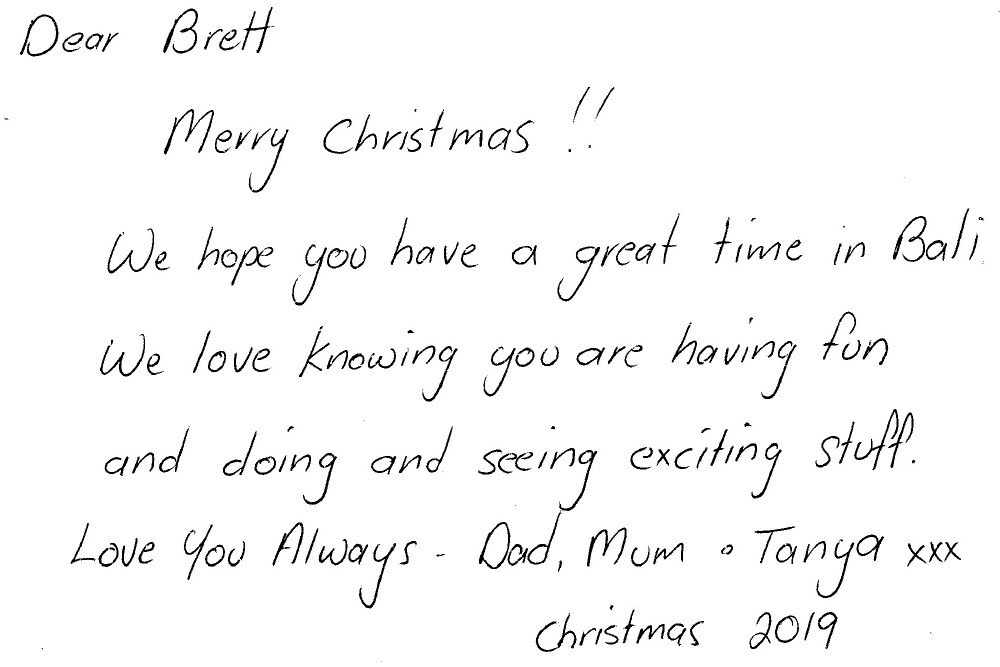 Dear Brett
Merry Christmas !!
We hope you have a great time in Bali.
We love knowing you are having fun
and doing and seeing exciting stuff.
Love You Always - Dad, Mum & Tanya xxx
Christmas 2019